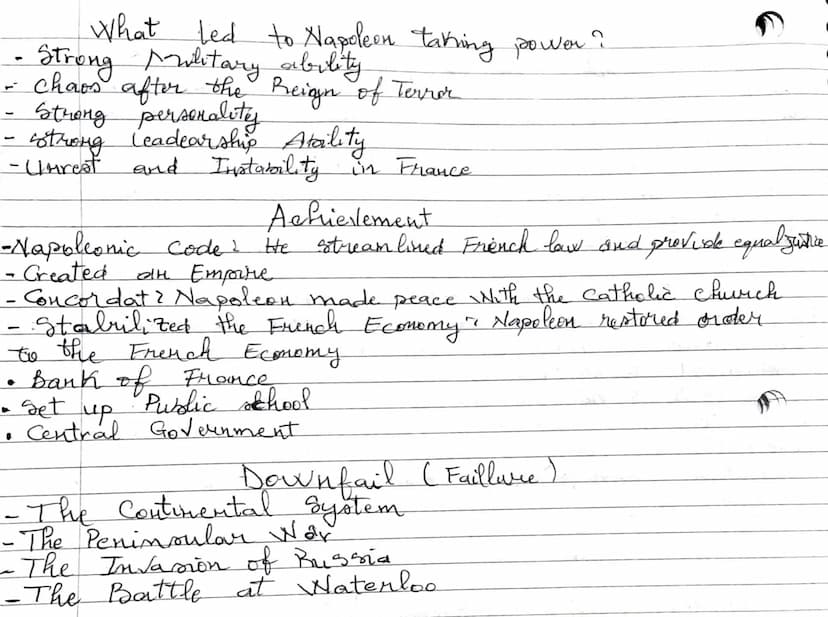 What led to Napoleon taking power?
- Strong Military ability
- Chaos after the Reign of Terror
- Strong personality
- Strong Leadearship Ability
- Unrest and Instability in France
Achievement
- Napoleonic Code: He streamlined French law and provide equal justice
- Created an Empire
- Concordat: Napoleon made peace With the Catholic Church
- Stabilized the French Economy: Napoleon restored order
to the French Economy
• Bank of France
• Set up Public school
• Central Government
Downfail (Faillure)
- The Continental System
- The Peninsular War
- The Invasion of Russia
- The Battle at Waterloo